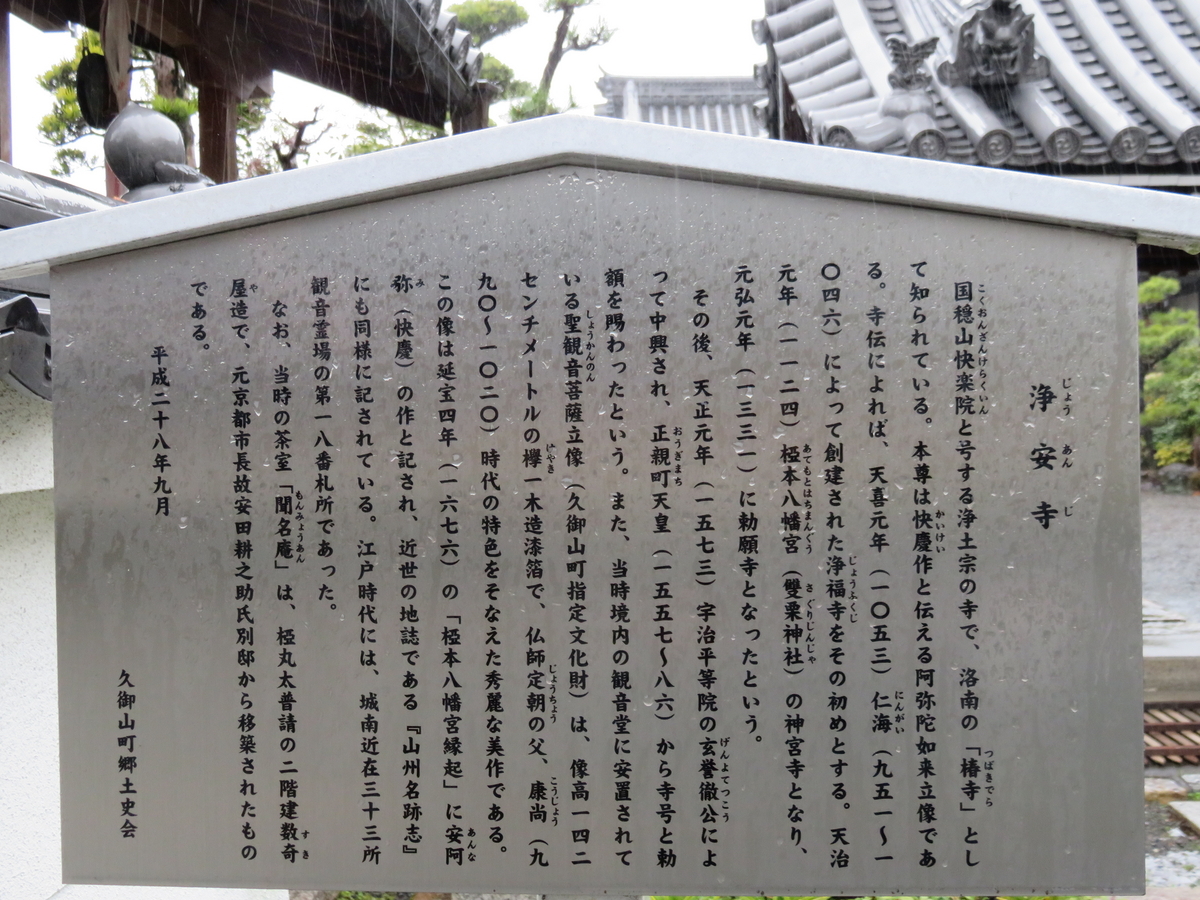 浄安寺
国穏山快楽院と号する浄土宗の寺で、洛南の「椿寺」とし
て知られている。本尊は快慶作と伝える阿弥陀如来立像であ
る。寺伝によれば、天喜元年（一〇五三）仁海（九五一～一
〇四六）によって創建された浄福寺をその初めとする。天治
元年（一一二四）椏本八幡宮（雙栗神社）の神宮寺となり、
元弘元年（一三三一）に勅願寺となったという。
その後、天正元年（一五七三）宇治平等院の玄誉徹公によ
って中興され、正親町天皇（一五五七～八六）から寺号と勅
額を賜わったという。また、当時境内の観音堂に安置されて
いる聖観音菩薩立像（久御山町指定文化財）は、像高一四二
センチメートルの欅一木造漆箔で、仏師定朝の父、康尚（九
九〇～一〇二〇）時代の特色をそなえた秀麗な美作である。
この像は延宝四年（一六七六）の「椏本八幡宮縁起」に安阿
弥（快慶）の作と記され、近世の地誌である『山州名跡志』
にも同様に記されている。江戸時代には、城南近在三十三所
観音霊場の第一八番札所であった。
なお、当時の茶室「聞名庵」は、椏丸太普請の二階建数奇
屋造で、元京都市長故安田耕之助氏別邸から移築されたもの
である。
平成二十八年九月
久御山町郷土史会